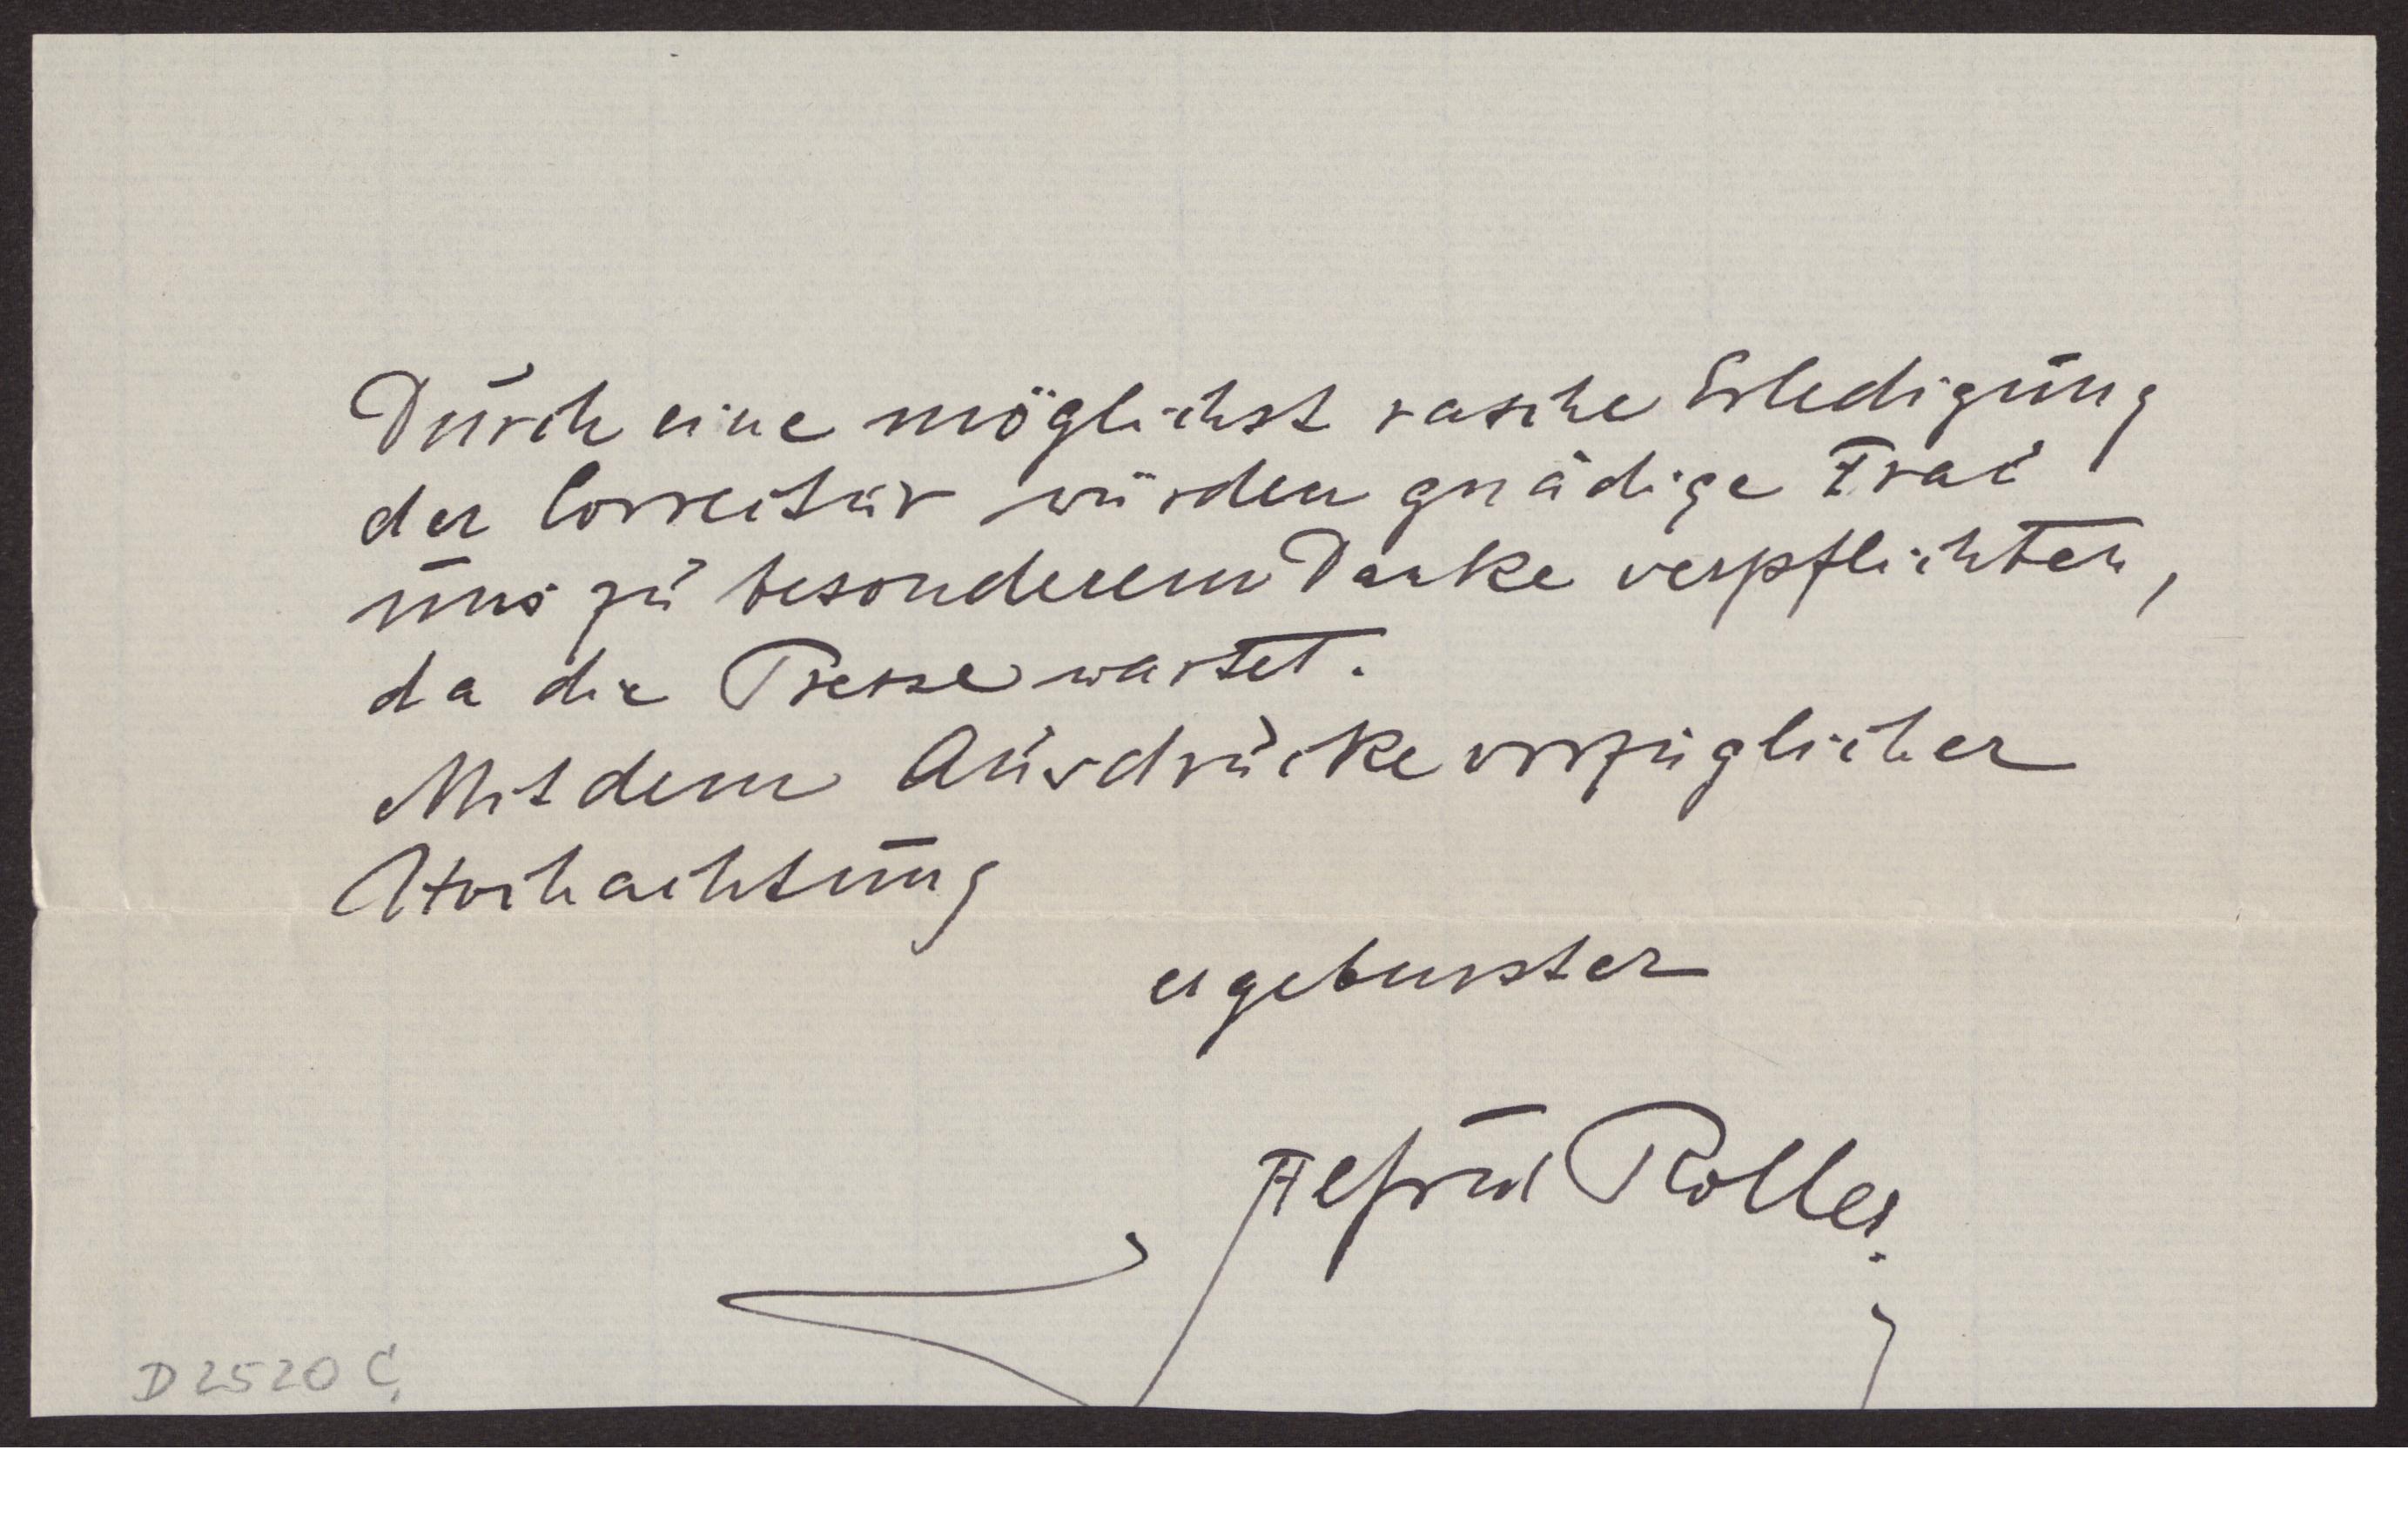 Durch eine möglichst rasche Erledigung
der Correctur würden gnädige Frau
uns zu besonderem Danke verpflichten,
da die Presse wartet.
Mit dem Ausdrucke vorzüglicher
Hochachtung
ergebenster
Alfred Roller.
D 2520 C,